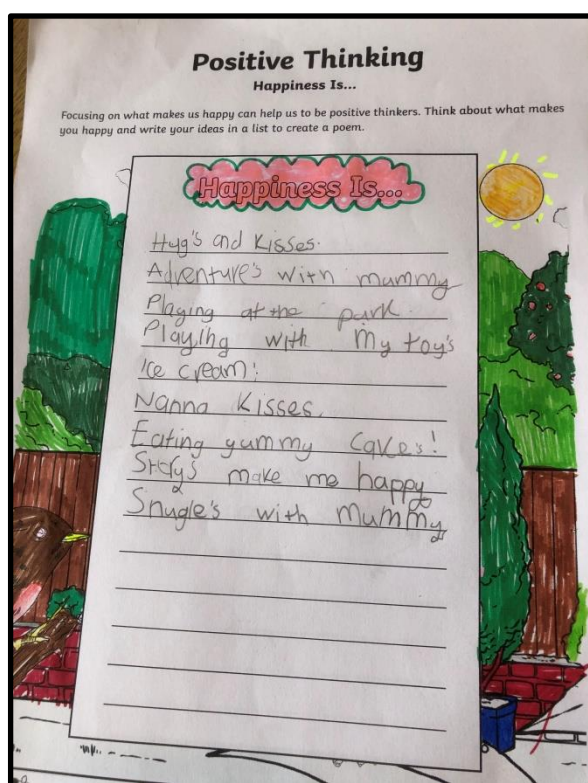 Positive Thinking
Happiness Is...
Focusing on what makes us happy can help us to be positive thinkers. Think about what makes
you happy and write your ideas in a list to create a poem.
Happiness Is...
Hug's and Kisses.
Adventure's with mummy
Playing at the park.
Playing with My toy's
Ice cream!
Nanna Kisses.
Eating yummy Cakes!
make me happy
Snugle's with Mummy